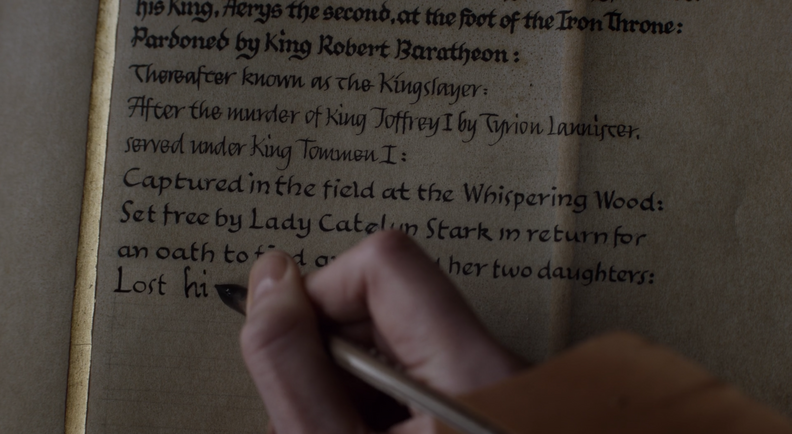 his King, Aerys the second, at the foot of the Iron Throne:
Pardoned by King Robert Baratheon:
Thereafter known as the Kingslayer:
After the murder of King Joffrey I by Tyrion Lannister.
served under King Tommen I:
Captured in the field at the Whispering Wood:
Set free by Lady Catelyn Stark in return for
an oath to find her two daughters:
Lost hi